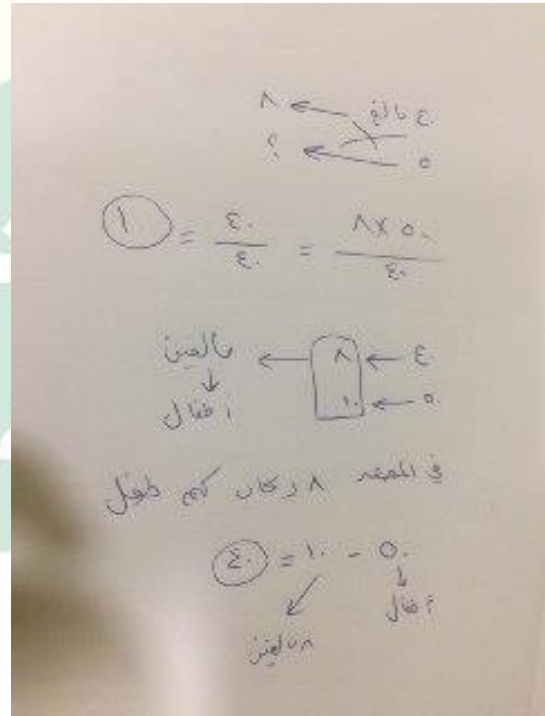 ٤٠ بالغ ← ٨
٥٠ ← ؟
٨ × ٥٠ / ٤٠ = ٤٠٠ / ٤٠ = ١٠
٤ ← ٨ ← بالغين
٥ ← ١٠ ↓
اطفال
في المصعد ٨ ركاب كم طفل
٥٠ - ١٠ = ٤٠
اطفال
بالغين